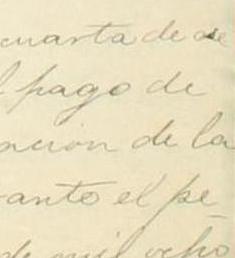 cuarta de de
l pago de
acion de la
anto el pe
de mil ocho